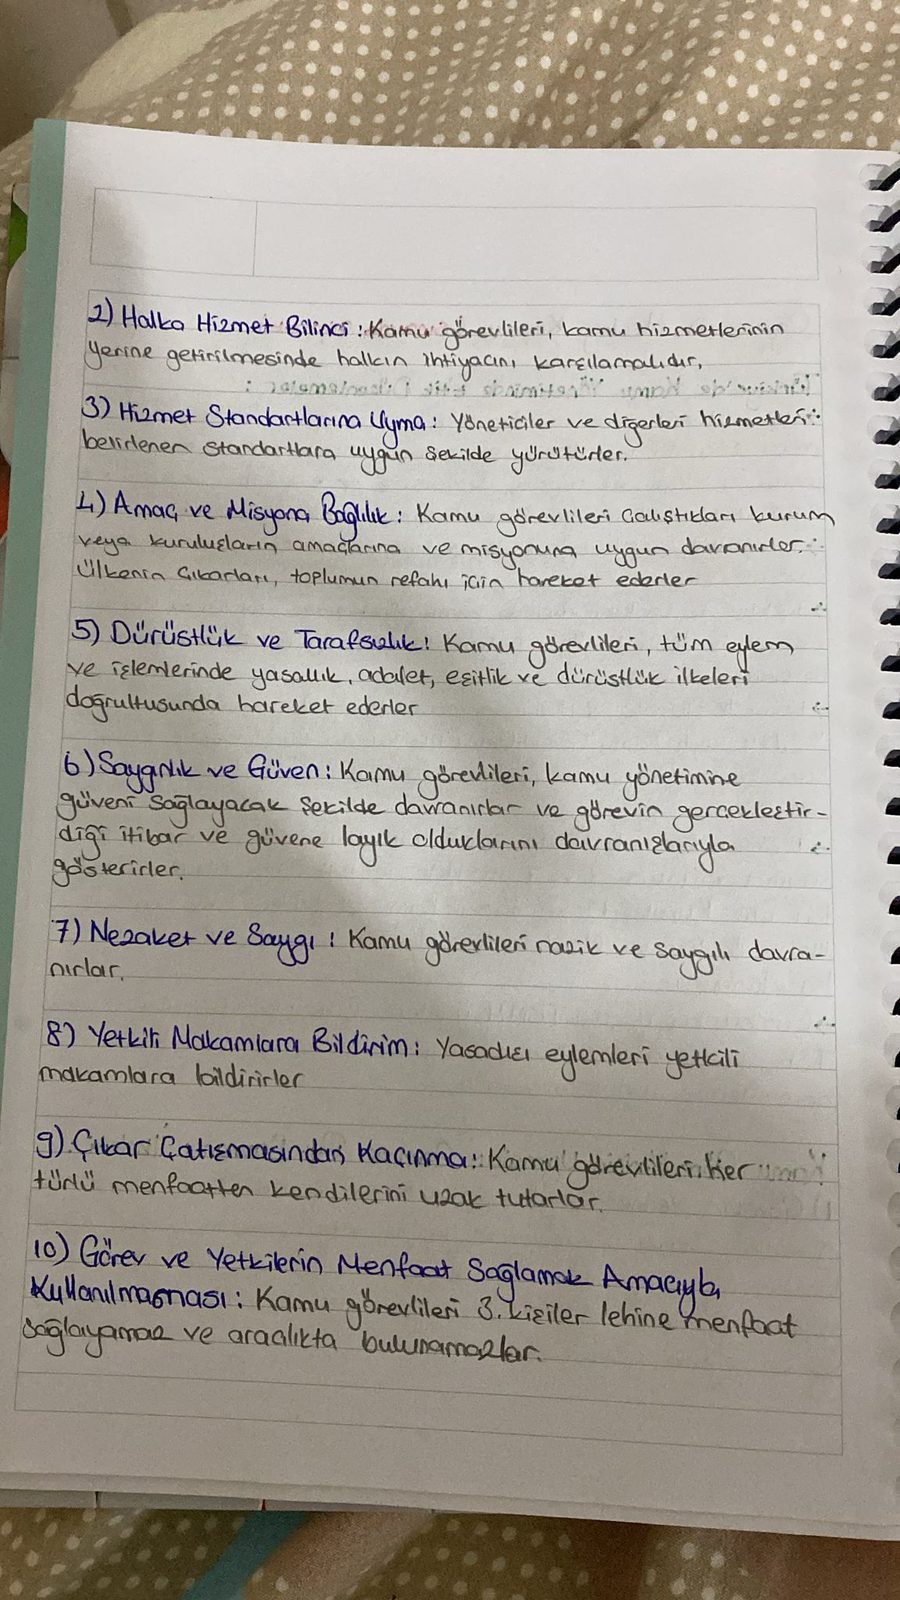 2) Halka Hizmet Bilinci : Kamu görevlileri, kamu hizmetlerinin
yerine getirilmesinde halkın ihtiyacını karşılamalıdır.
3) Hizmet Standartlarına Uyma : Yöneticiler ve diğerleri hizmetleri
belirlenen standartlara uygun şekilde yürütürler.
4) Amaç ve Misyona Bağlılık : Kamu görevlileri çalıştıkları kurum
veya kuruluşların amaçlarına ve misyonuna uygun davranırlar.
Ülkenin çıkarları, toplumun refahı için hareket ederler
5) Dürüstlük ve Tarafsızlık : Kamu görevlileri, tüm eylem
ve işlemlerinde yasallık, adalet, eşitlik ve dürüstlük ilkeleri
doğrultusunda hareket ederler
6) Saygınlık ve Güven : Kamu görevlileri, kamu yönetimine
güveni sağlayacak şekilde davranırlar ve görevin gerçekleştir-
diği itibar ve güvene layık olduklarını davranışlarıyla
gösterirler.
7) Nezaket ve Saygı : Kamu görevlileri nazik ve saygılı davra-
nırlar.
8) Yetkili Makamlara Bildirim : Yasadışı eylemleri yetkili
makamlara bildirirler
9) Çıkar Çatışmasından Kaçınma : Kamu görevlileri, her
türlü menfaatten kendilerini uzak tutarlar.
10) Görev ve Yetkilerin Menfaat Sağlamak Amacıyla
Kullanılmaması : Kamu görevlileri 3. kişiler lehine menfaat
sağlayamaz ve aracılıkta bulunamazlar.